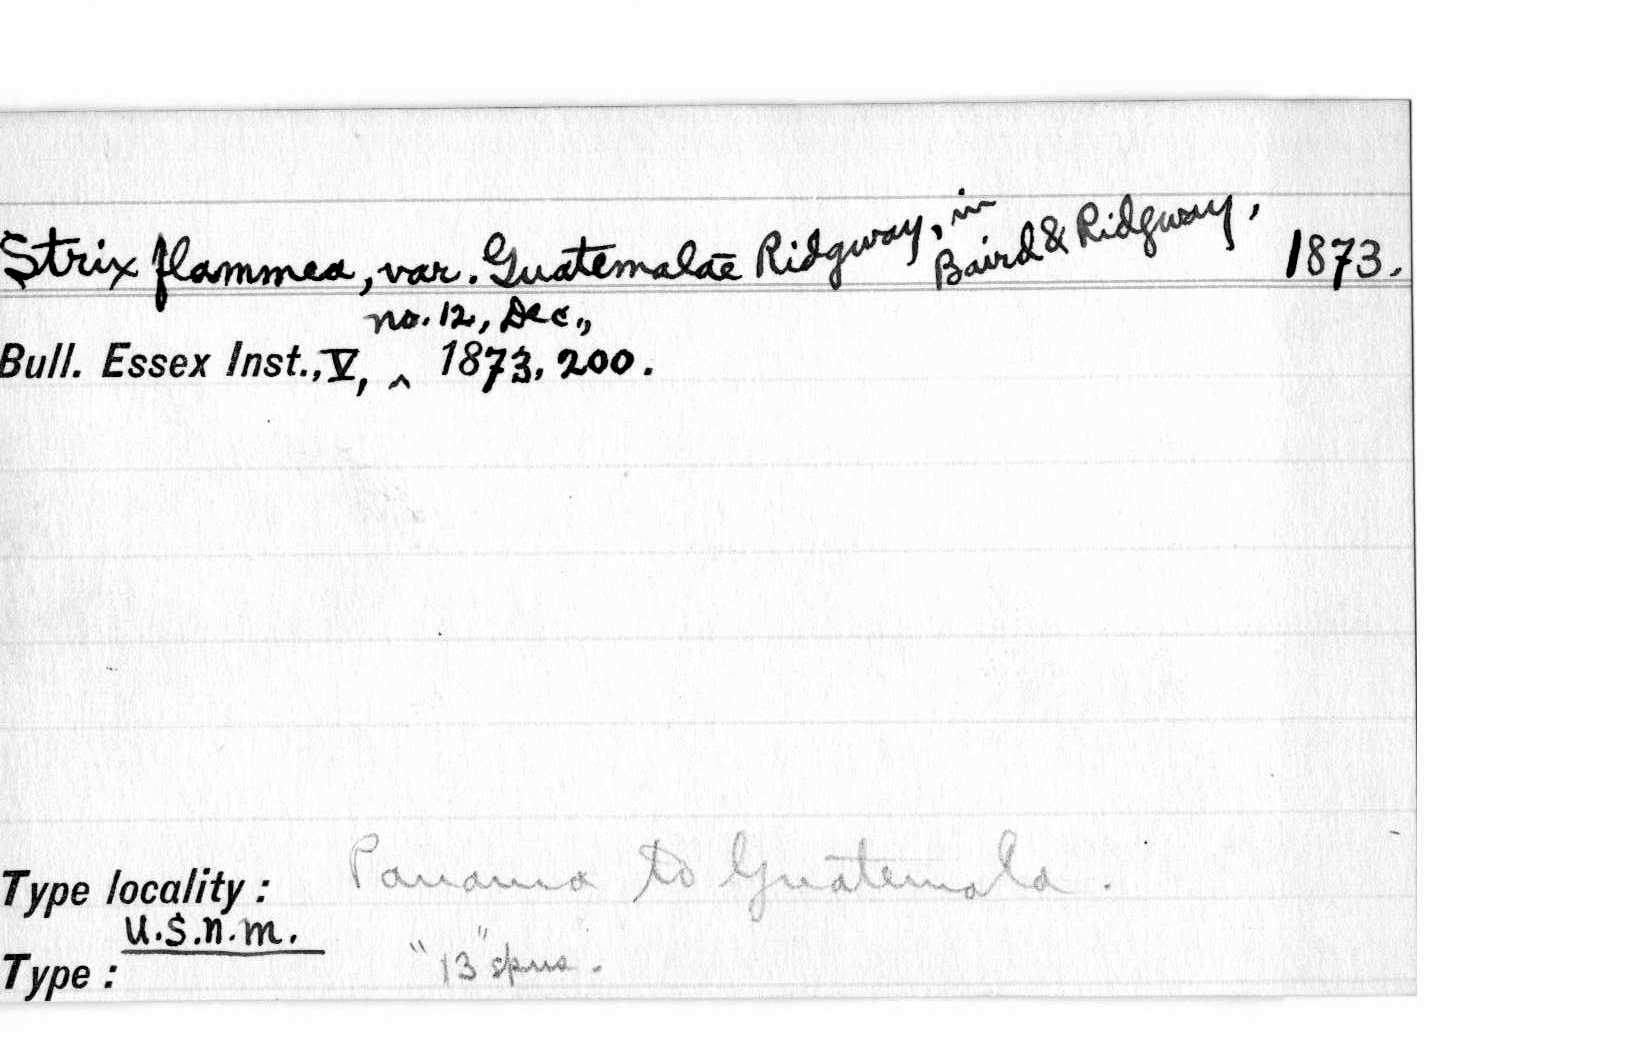 Strix flammea, var. Guatemalae Ridgway, in Baird & Ridgway, 1873.
no. 12, Dec.,
Bull. Essex Inst., V, ^ 1873, 200.
Type locality: Panama to Guatemala.
U.S.N.M.
Type: "13" spns.